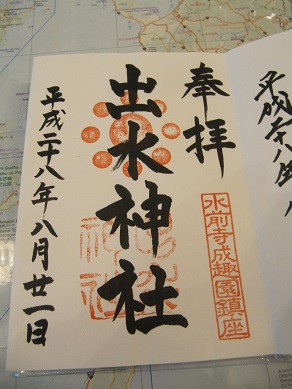 奉拝
水前寺成趣園鎮座
出水神社
平成二十八年八月廿一日
平成廿八年八